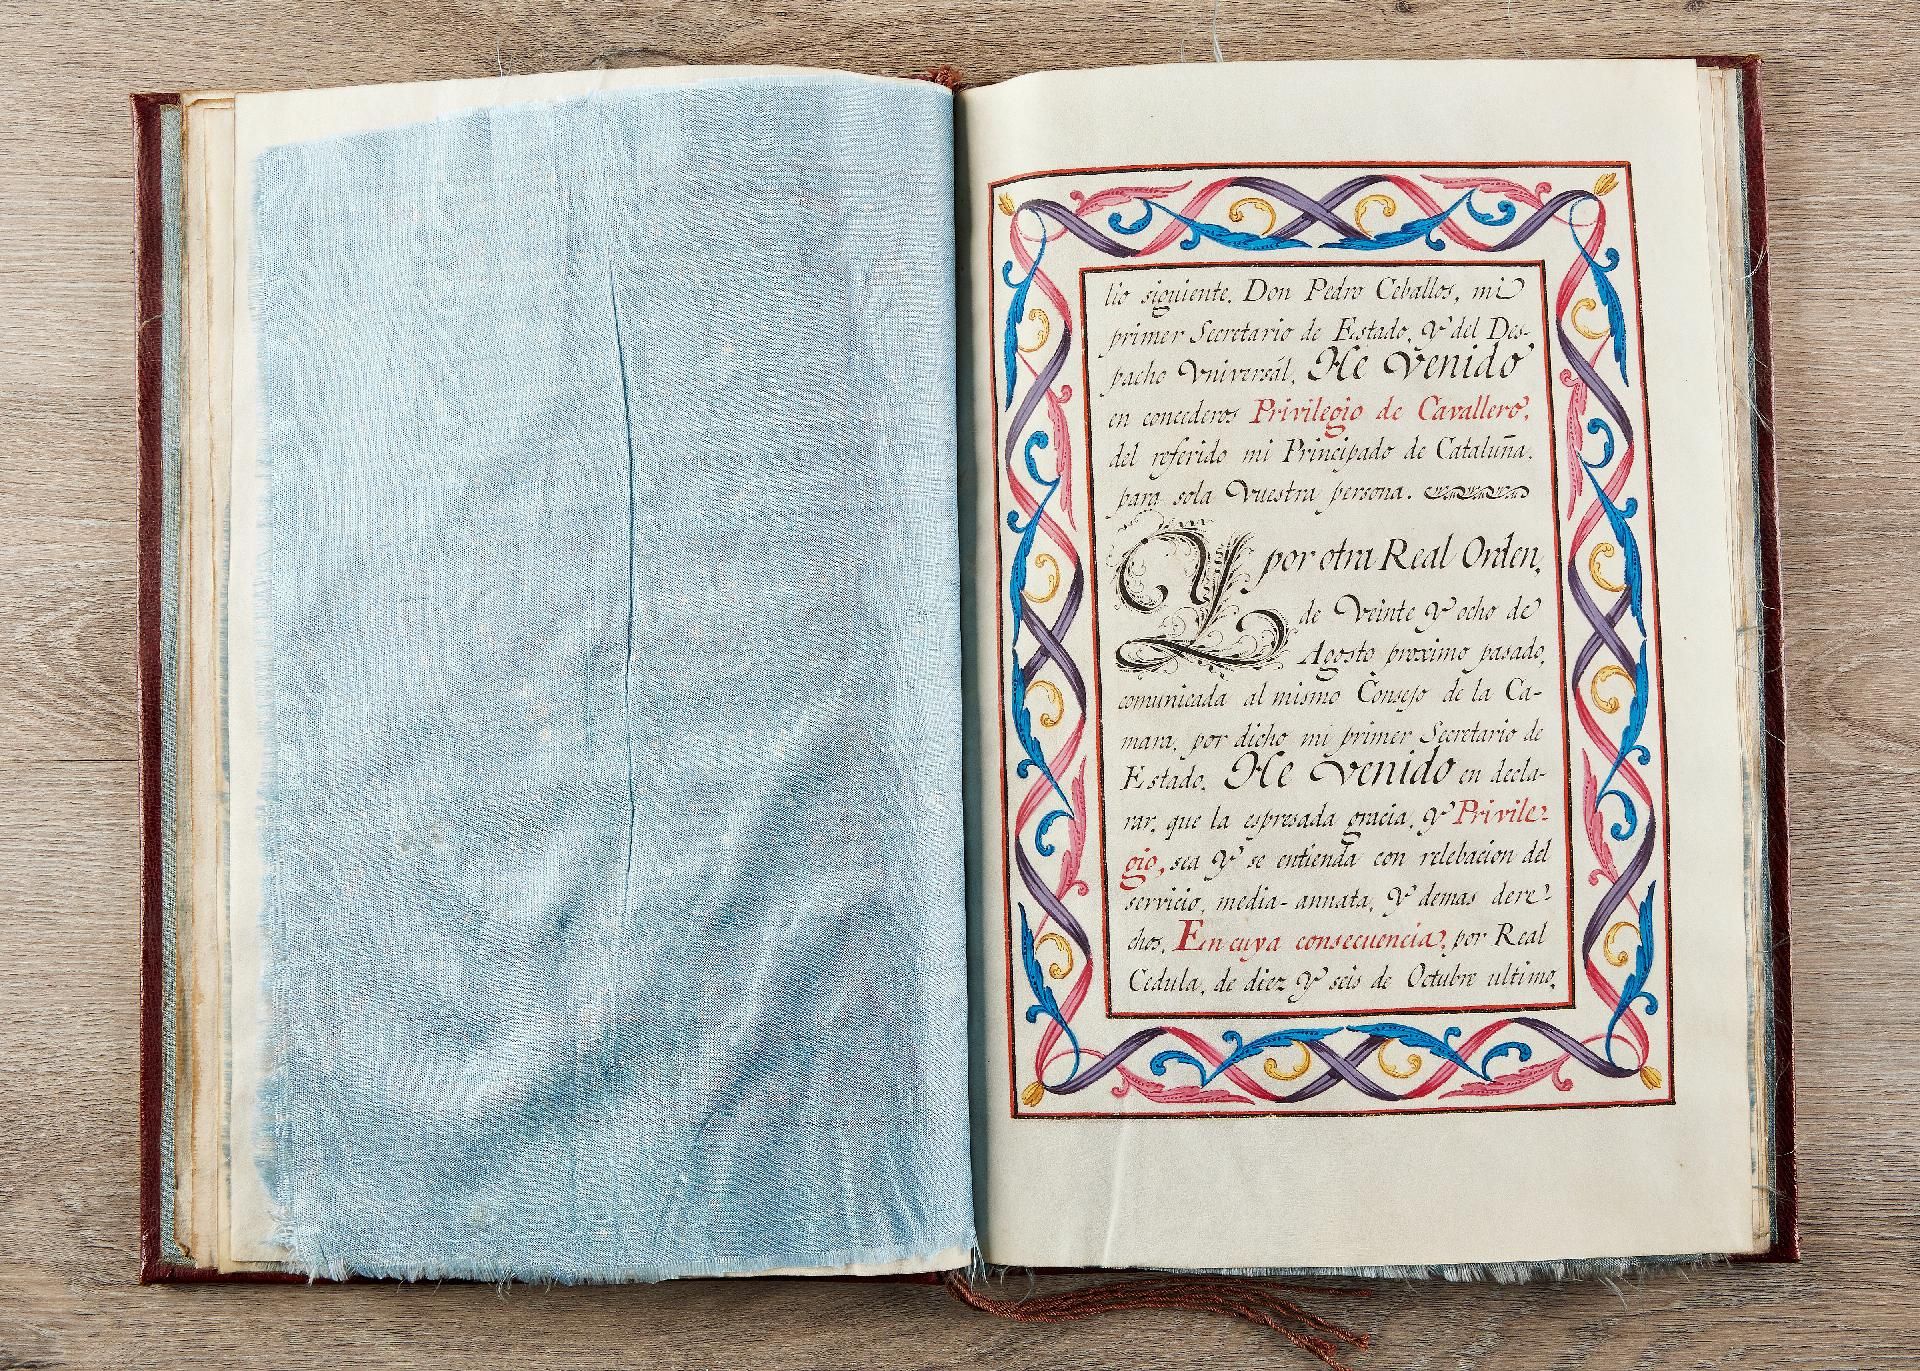 lio siguiente, Don Pedro Ceballos, mi
primer Secretario de Estado, y del Des-
pacho Vniversál, He Venido
en concederos Privilegio de Cavallero,
del referido mi Principado de Cataluña,
para sola Vuestra persona.
Y por otra Real Orden,
de Veinte y ocho de
Agosto proximo pasado,
comunicada al mismo Consejo de la Ca-
mara, por dicho mi primer Secretario de
Estado, He Venido en decla-
rar, que la espresada gracia, y Privile-
gio, sea y se entienda con relebacion del
servicio, media-annata, y demas dere-
chos. En cuya consecuencia, por Real
Cedula, de diez y seis de Octubre ultimo,